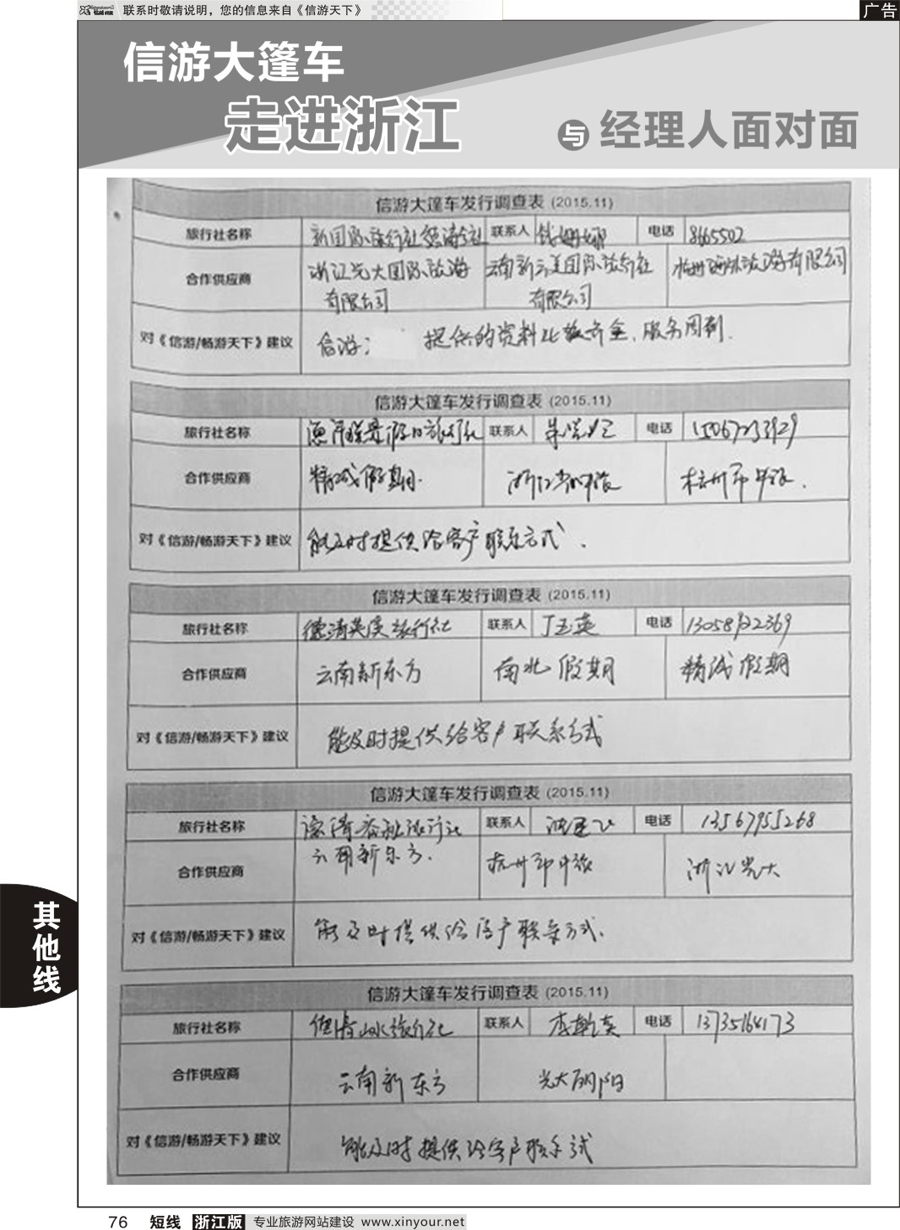 联系时敬请说明，您的信息来自《信游天下》
广告
信游大篷车
走进浙江
与 经理人面对面
信游大篷车发行调查表 (2015.11)
旅行社名称 联系人 电话 8665502
合作供应商 浙江光大国际旅游有限公司 云南新 国际旅行社有限公司 杭州 旅游有限公司
对《信游/畅游天下》建议 信游： 提供的资料比较齐全，服务周到.
信游大篷车发行调查表 (2015.11)
旅行社名称 联系人 电话
合作供应商 精诚假期. 浙江 中旅 杭州市中旅.
对《信游/畅游天下》建议 能及时提供给客户联系方式.
信游大篷车发行调查表 (2015.11)
旅行社名称 德清 旅行社 联系人 丁玉英 电话
合作供应商 云南新东方 南北假期 精诚假期
对《信游/畅游天下》建议 能及时提供给客户联系方式
信游大篷车发行调查表 (2015.11)
旅行社名称 德清 旅行社 联系人 电话 13567955268
合作供应商 云南新东方. 杭州市中旅 浙江光大
对《信游/畅游天下》建议 能及时提供给客户联系方式.
信游大篷车发行调查表 (2015.11)
旅行社名称 德清山水旅行社 联系人 电话 13735164173
合作供应商 云南新东方 光大阴阳
对《信游/畅游天下》建议 能及时提供给客户联系方式
其他线
76 短线 浙江版 专业旅游网站建设 www.xinyour.net